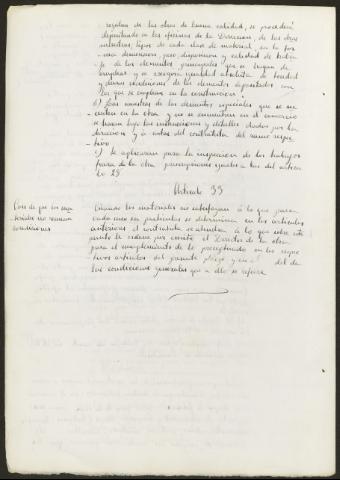 de las obras de buena calidad, se procederá
depositando en las oficinas de la Dirección, de las obras
muestras, tipos de cada clase de material, en la for-
ma, dimensión, peso, disposición y calidad de traba-
jo de los elementos principales que se hayan de
emplear y se exigirá igualdad absoluta de bondad
y demás de los elementos depositados con
los que se empleen en la construcción.
b) Las muestras de los elementos especiales que se
en la obra y no se encuentren en el comercio
se harán bajo las instrucciones y detalles dados por la
dirección y a costa del contratista del ramo respec-
tivo
c) Se aplicarán para la inspección de los trabajos
fuera de la obra prescripciones iguales a las del artícu-
lo 25
Artículo 33
Caso de que los mate-
riales no reúnan
condiciones
Cuando los materiales no satisfagan á lo que para
cada uno en particular se determina en los artículos
anteriores el contratista se atendrá á lo que sobre este
punto le ordene por escrito el Director de las obras
para el cumplimiento de lo preceptuado en los respec-
tivos artículos del presente pliego y en el del de
las condiciones generales que a ello se refiere